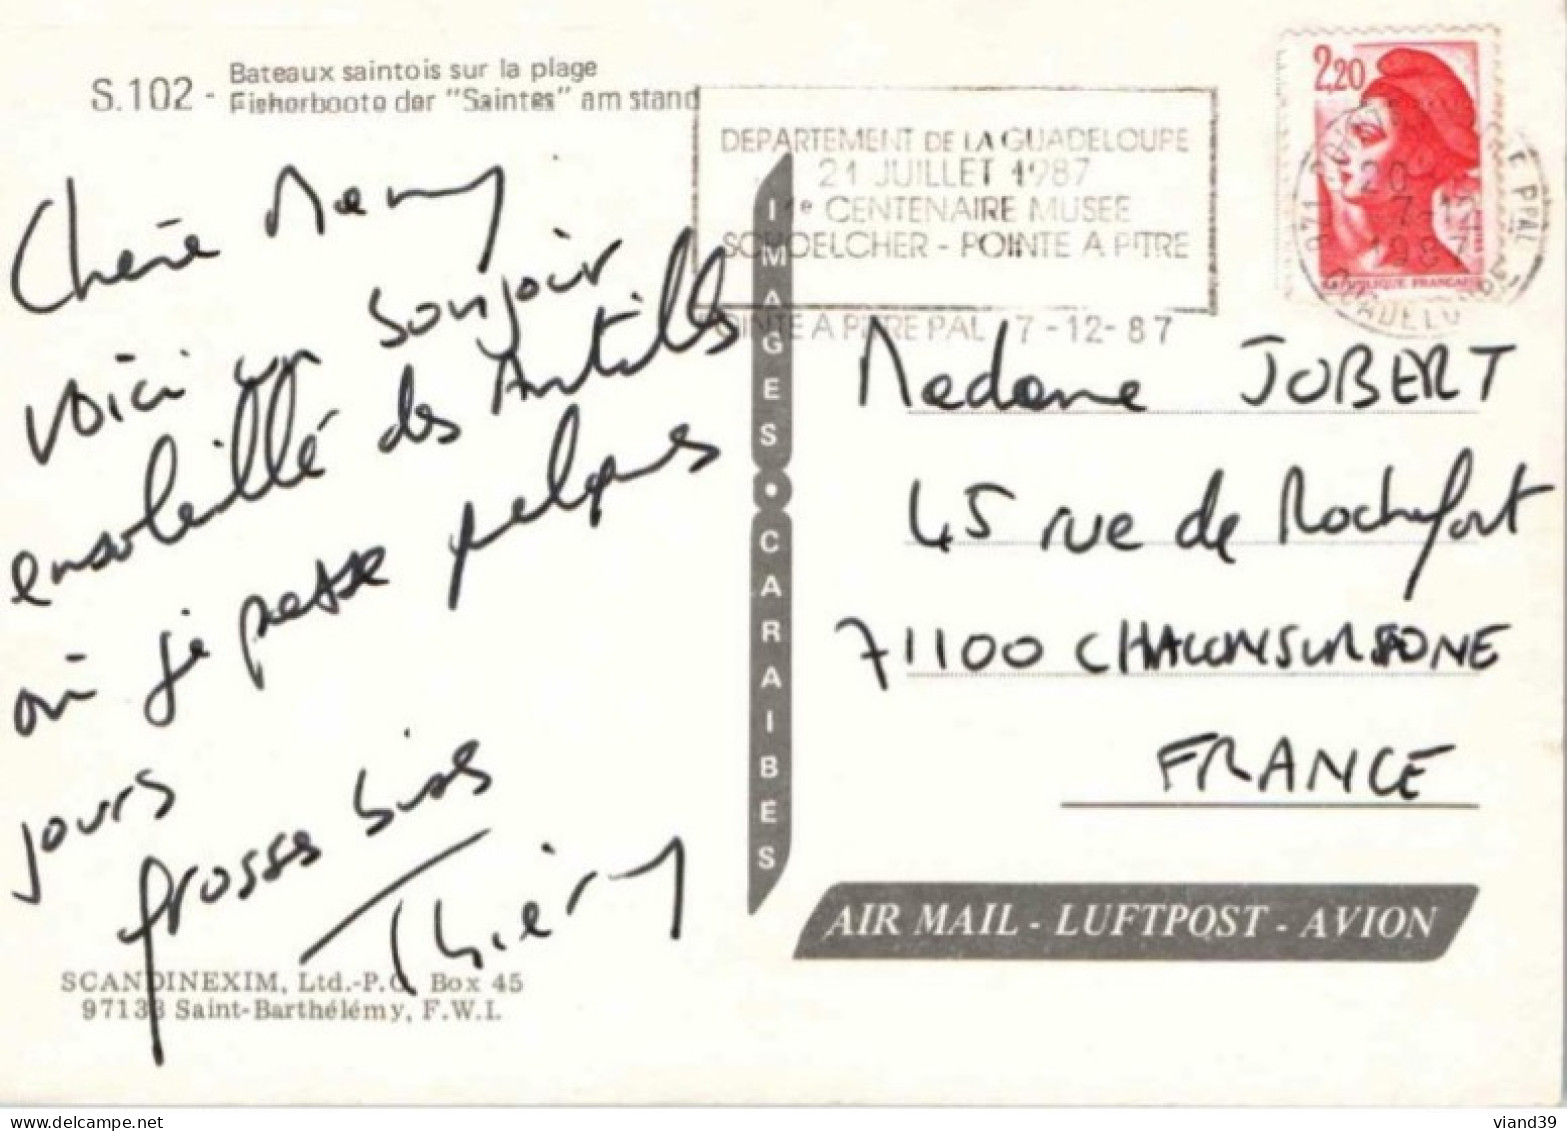 S.102 -
Bateaux saintois sur la plage
Fisherboote der "Saintes" am stand
DEPARTEMENT DE LA GUADELOUPE
21 JUILLET 1987
1e CENTENAIRE MUSEE
SCHOELCHER - POINTE A PITRE
POINTE A PITRE PAL 7-12-87
2,20
20
7-12
1987
GUADELOUPE
Chère Mamy
voici un bonjour
ensoleillé des Antilles
où je passe quelques
jours
grosses bises
Thierry
IMAGES • CARAIBES
Madame JOBERT
45 rue de Rochefort
71100 CHALONSURSAONE
FRANCE
AIR MAIL - LUFTPOST - AVION
SCANDINEXIM, Ltd.-P.O. Box 45
97133 Saint-Barthélémy, F.W.I.
viand39